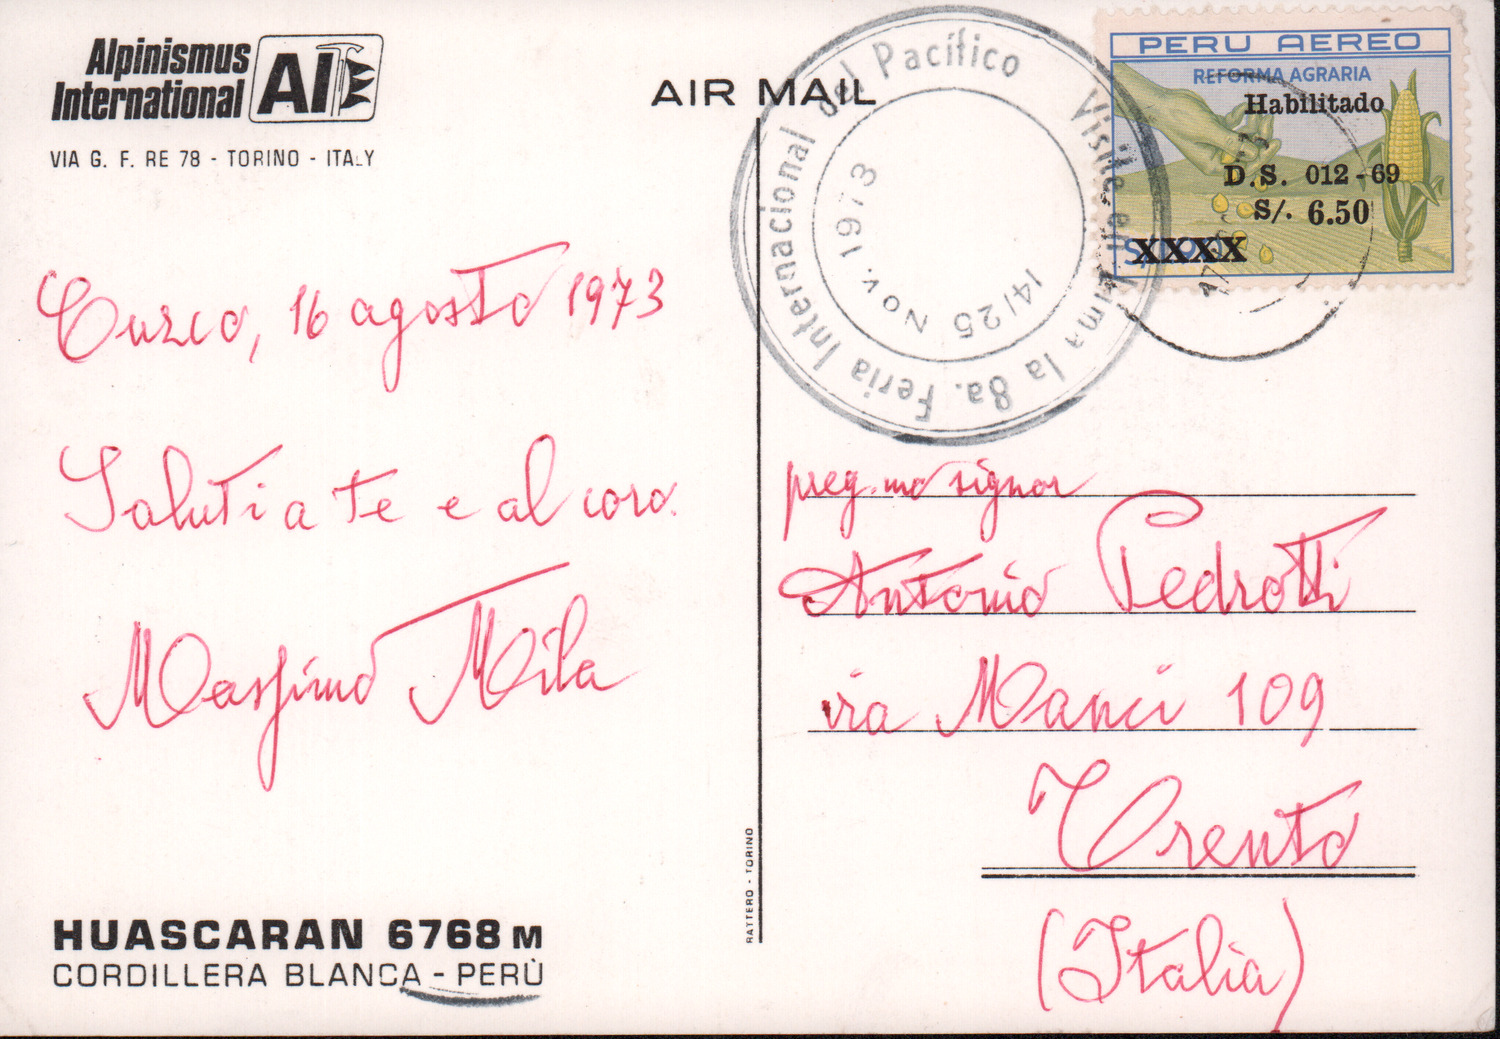 Alpinismus
International
AI
VIA G. F. RE 78 - TORINO - ITALY
AIR MAIL
Visite en Lima la 8a. Feria Internacional del Pacífico
14/25 Nov. 1973
PERU AEREO
REFORMA AGRARIA
Habilitado
D.S. 012-69
S/. 6.50
XXXX
Cuzco, 16 agosto 1973
Saluti a te e al coro.
Massimo Mila
preg.mo signor
Antonio Pedrotti
via Manci 109
Trento
(Italia)
RATTERO - TORINO
HUASCARAN 6768 M
CORDILLERA BLANCA - PERÙ